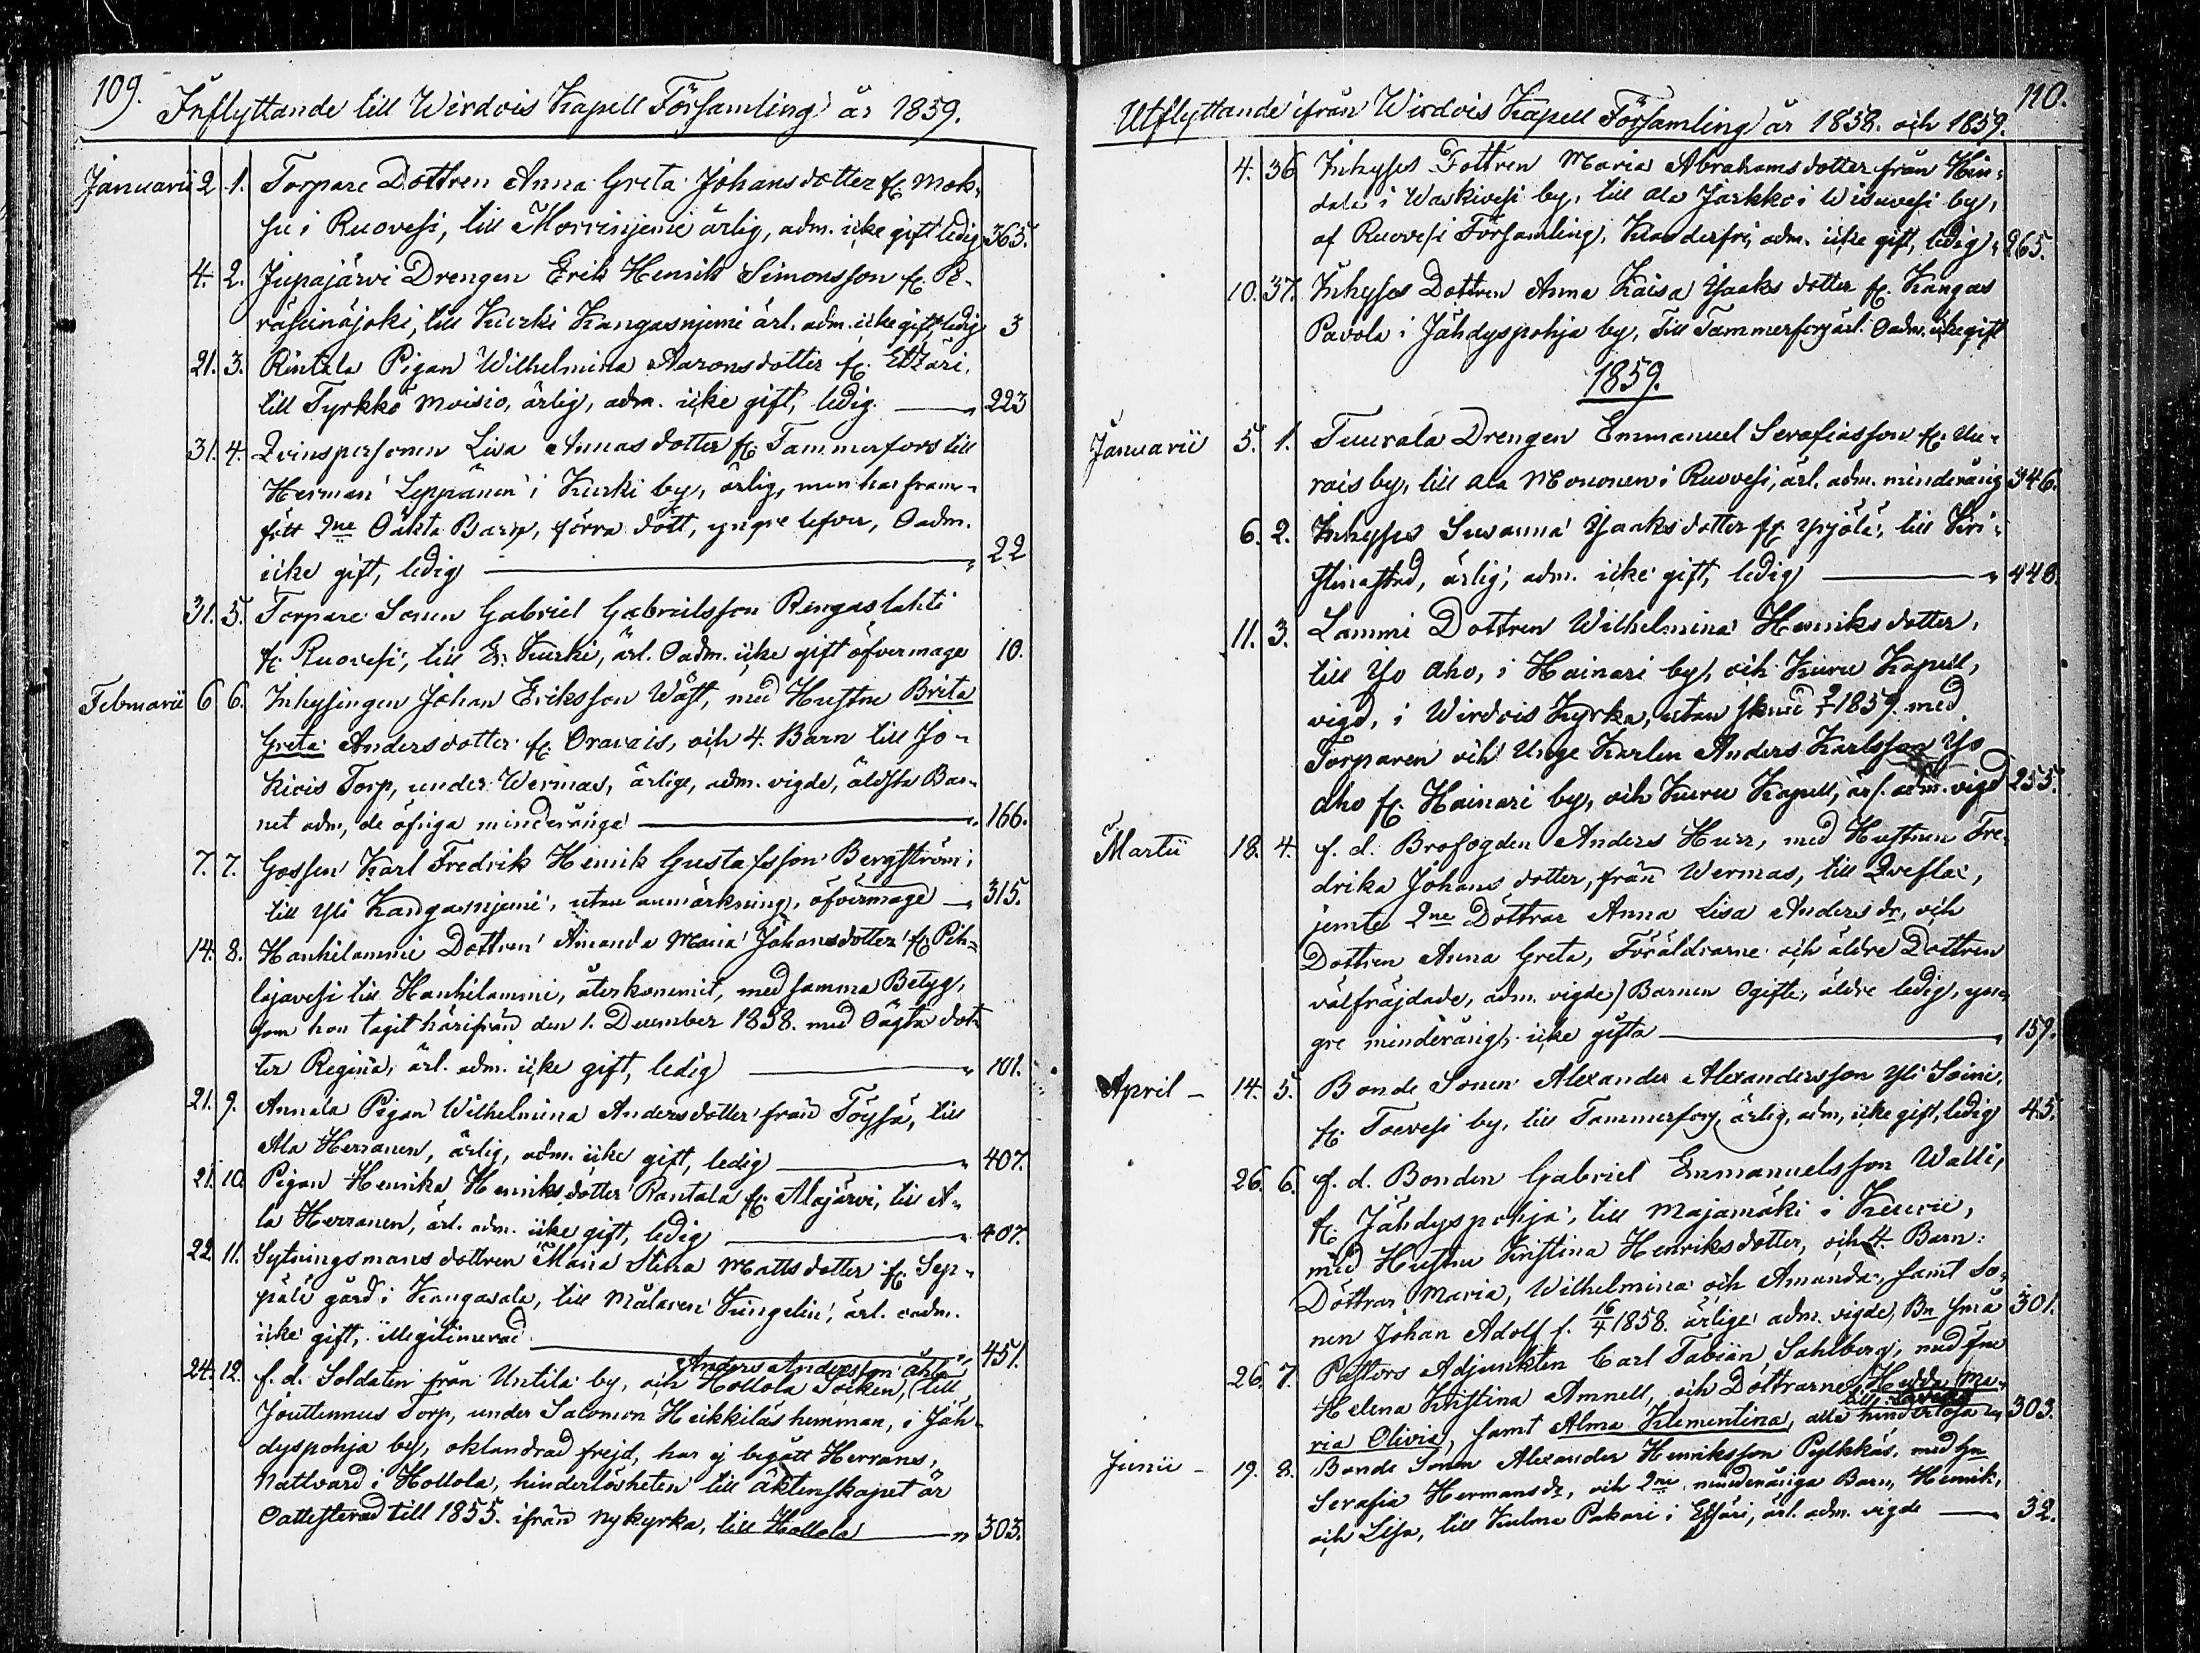 109.
Inflyttande till Wirdois Kapell Församling år 1859.
Januarii 2 1. Torpare Dottren Anna Greta Johansdotter fr. Mok-
su i Ruovesi, till Morrinjemi ärlig, adm. icke gift ledig 365.
4. 2. Jupajärvi Drengen Erik Henrik Simonsson fr. Pe-
räseinäjoki, till Kurki Kangasnjemi ärl. adm. icke gift, ledig 3
21. 3. Rintala Pigan Wilhelmina Aaronsdotter fr. Etzäri,
till Tyrkkö Moisio, ärlig, adm. icke gift, ledig. 223
31. 4. Qvinspersonen Lisa Annasdotter fr. Tammerfors till
Herman Leppänen i Kurki by, ärlig, men har fram-
fött 2ne Oäkta Barn, förra dött, yngre lefver, Oadm.
icke gift, ledig 22
31. 5. Torpare Sonen Gabriel Gabrielsson Rengaslahti
fr. Ruovesi, till Er. Kurki, ärl. Oadm. icke gift öfvermage 10.
Februarii 6 6. Inhysingen Johan Eriksson Wäst, med Hustru Brita
Greta Andersdotter fr. Oravais, och 4. Barn till Jo-
kiois Torp, under Wermas, ärlige, adm. vigde, äldsta Bar-
net adm, de öfriga minderårige 166.
7. 7. Gossen Karl Fredrik Henrik Gustafsson Bergström;
till Yli Kangasnjemi, utan anmärkning, öfvermage 315.
14. 8. Hanhilammi Dottren Amanda Maria Johansdotter fr. Pih-
lajavesi till Hanhilammi, återkommit, med samma Betyg,
som hon tagit härifrån den 1. December 1858. med Oägta dot-
ter Regina, ärl. adm. icke gift, ledig 101.
21. 9. Annala Pigan Wilhelmina Andersdotter från Töysä, till
Ala Herranen, ärlig, adm. icke gift, ledig 407.
21. 10. Pigan Henrika Henriksdotter Rantala fr. Alajärvi, till A-
la Herranen, ärl. adm. icke gift, ledig 407.
22. 11. Sytningsmans dottren Maria Stina Mattsdotter fr. Sep-
pälä gård i Kangasala, till Målaren Kungelin, ärl. oadm.
icke gift, illegitimerad 451.
Anders Andersson
24. 12. f. d. Soldaten från Untila by, och Hollola Socken, till
Jouttennus Torp, under Salomon Heikkiläs hemman, i Jäh-
dyspohja by, oklandrad frejd, har ej begått Herrans
Nattvard i Hollola, hinderlösheten till äktenskapet är
Oattesterad till 1855. ifrån Nykyrka, till Hollola 303.
110.
Utflyttande ifrån Wirdois Kapell Församling år 1858. och 1859.
4. 36 Inhyses Dottren Maria Abrahamsdotter från Hin-
dala i Waskivesi by, till Ala Jarkko i Wisuvesi by,
af Ruovesi Församling, Klanderfri, adm. icke gift, ledig 265.
10. 37. Inhyses Dottren Anna Kaisa Isaksdotter fr. Kangas
Pavola i Jähdyspohja by, Till Tammerfors, ärl. Oadm. icke gift
1859.
Januarii 5. 1. Tuurala Drengen Emmanuel Serafiasson fr. Uu-
rais by, till Ala Mononen i Ruovesi, ärl. adm. minderårig 346.
6. 2. Inhyses Susanna Isaksdotter fr. Yrjölä, till Kri-
stinestad, ärlig, adm. icke gift, ledig 448.
11. 3. Lammi Dottren Wilhelmina Henriksdotter,
till Iso Aho, i Hainari by, och Kuru Kapell,
vigd, i Wirdois Kyrka, utan 1859. med
Torparen och Unge Karlen Anders Karlsson Iso
Aho fr. Hainari by, och Kuru Kapell, ärl. adm. vigd 255.
Martii 18. 4. f. d. Brofogden Anders Hurr, med Hustrun Fre-
drika Johansdotter, från Wermas, till Qvefla,
jemte 2ne Döttrar Anna Lisa Andersdr, och
Dottren Anna Greta, Föräldrarne och äldre Dottren
välfräjdade, adm. vigde / Barnen Ogifte, äldre ledig, yn-
gre minderårig, icke gifta 159.
April - 14. 5. Bonde Sonen Alexander Alexandersson Yli Soini,
fr. Toevesi by, till Tammerfors, ärlig, adm, icke gift, ledig 45.
26. 6. f. d. Bonden Gabriel Emmanuelsson Walli,
fr. Jähdyspohja, till Majamäki i Keuru,
med Hustru Kristina Henriksdotter, och 4. Barn:
Döttrar Maria, Wilhelmina och Amanda, samt So-
nen Johan Adolf f. 16/4 1858. ärlige adm. vigde, Bn små 301.
26. 7. Pastors Adjunkten Carl Fabian Sahlberg, med fru
Helena Kristina Amnell, och Döttrarne Hedda Ma-
ria Olivia, samt Alma Klementina, alla hinderlösa 303.
Junii - 19. 8. Bonde Sonen Alexander Henriksson Pylkkäs, med hu
Serafia Hermansdr, och 2ne minderåriga Barn, Henrik,
och Lisa, till Kulma Pakari i Etsäri, ärl. adm. vigde 32.